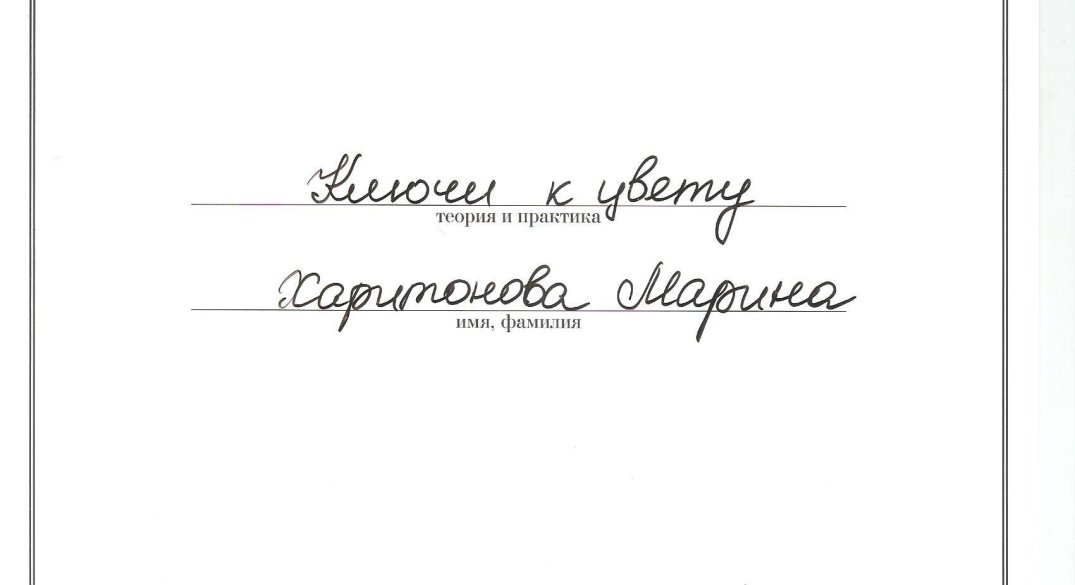 Ключи к цвету
теория и практика
Харитонова Марина
имя, фамилия